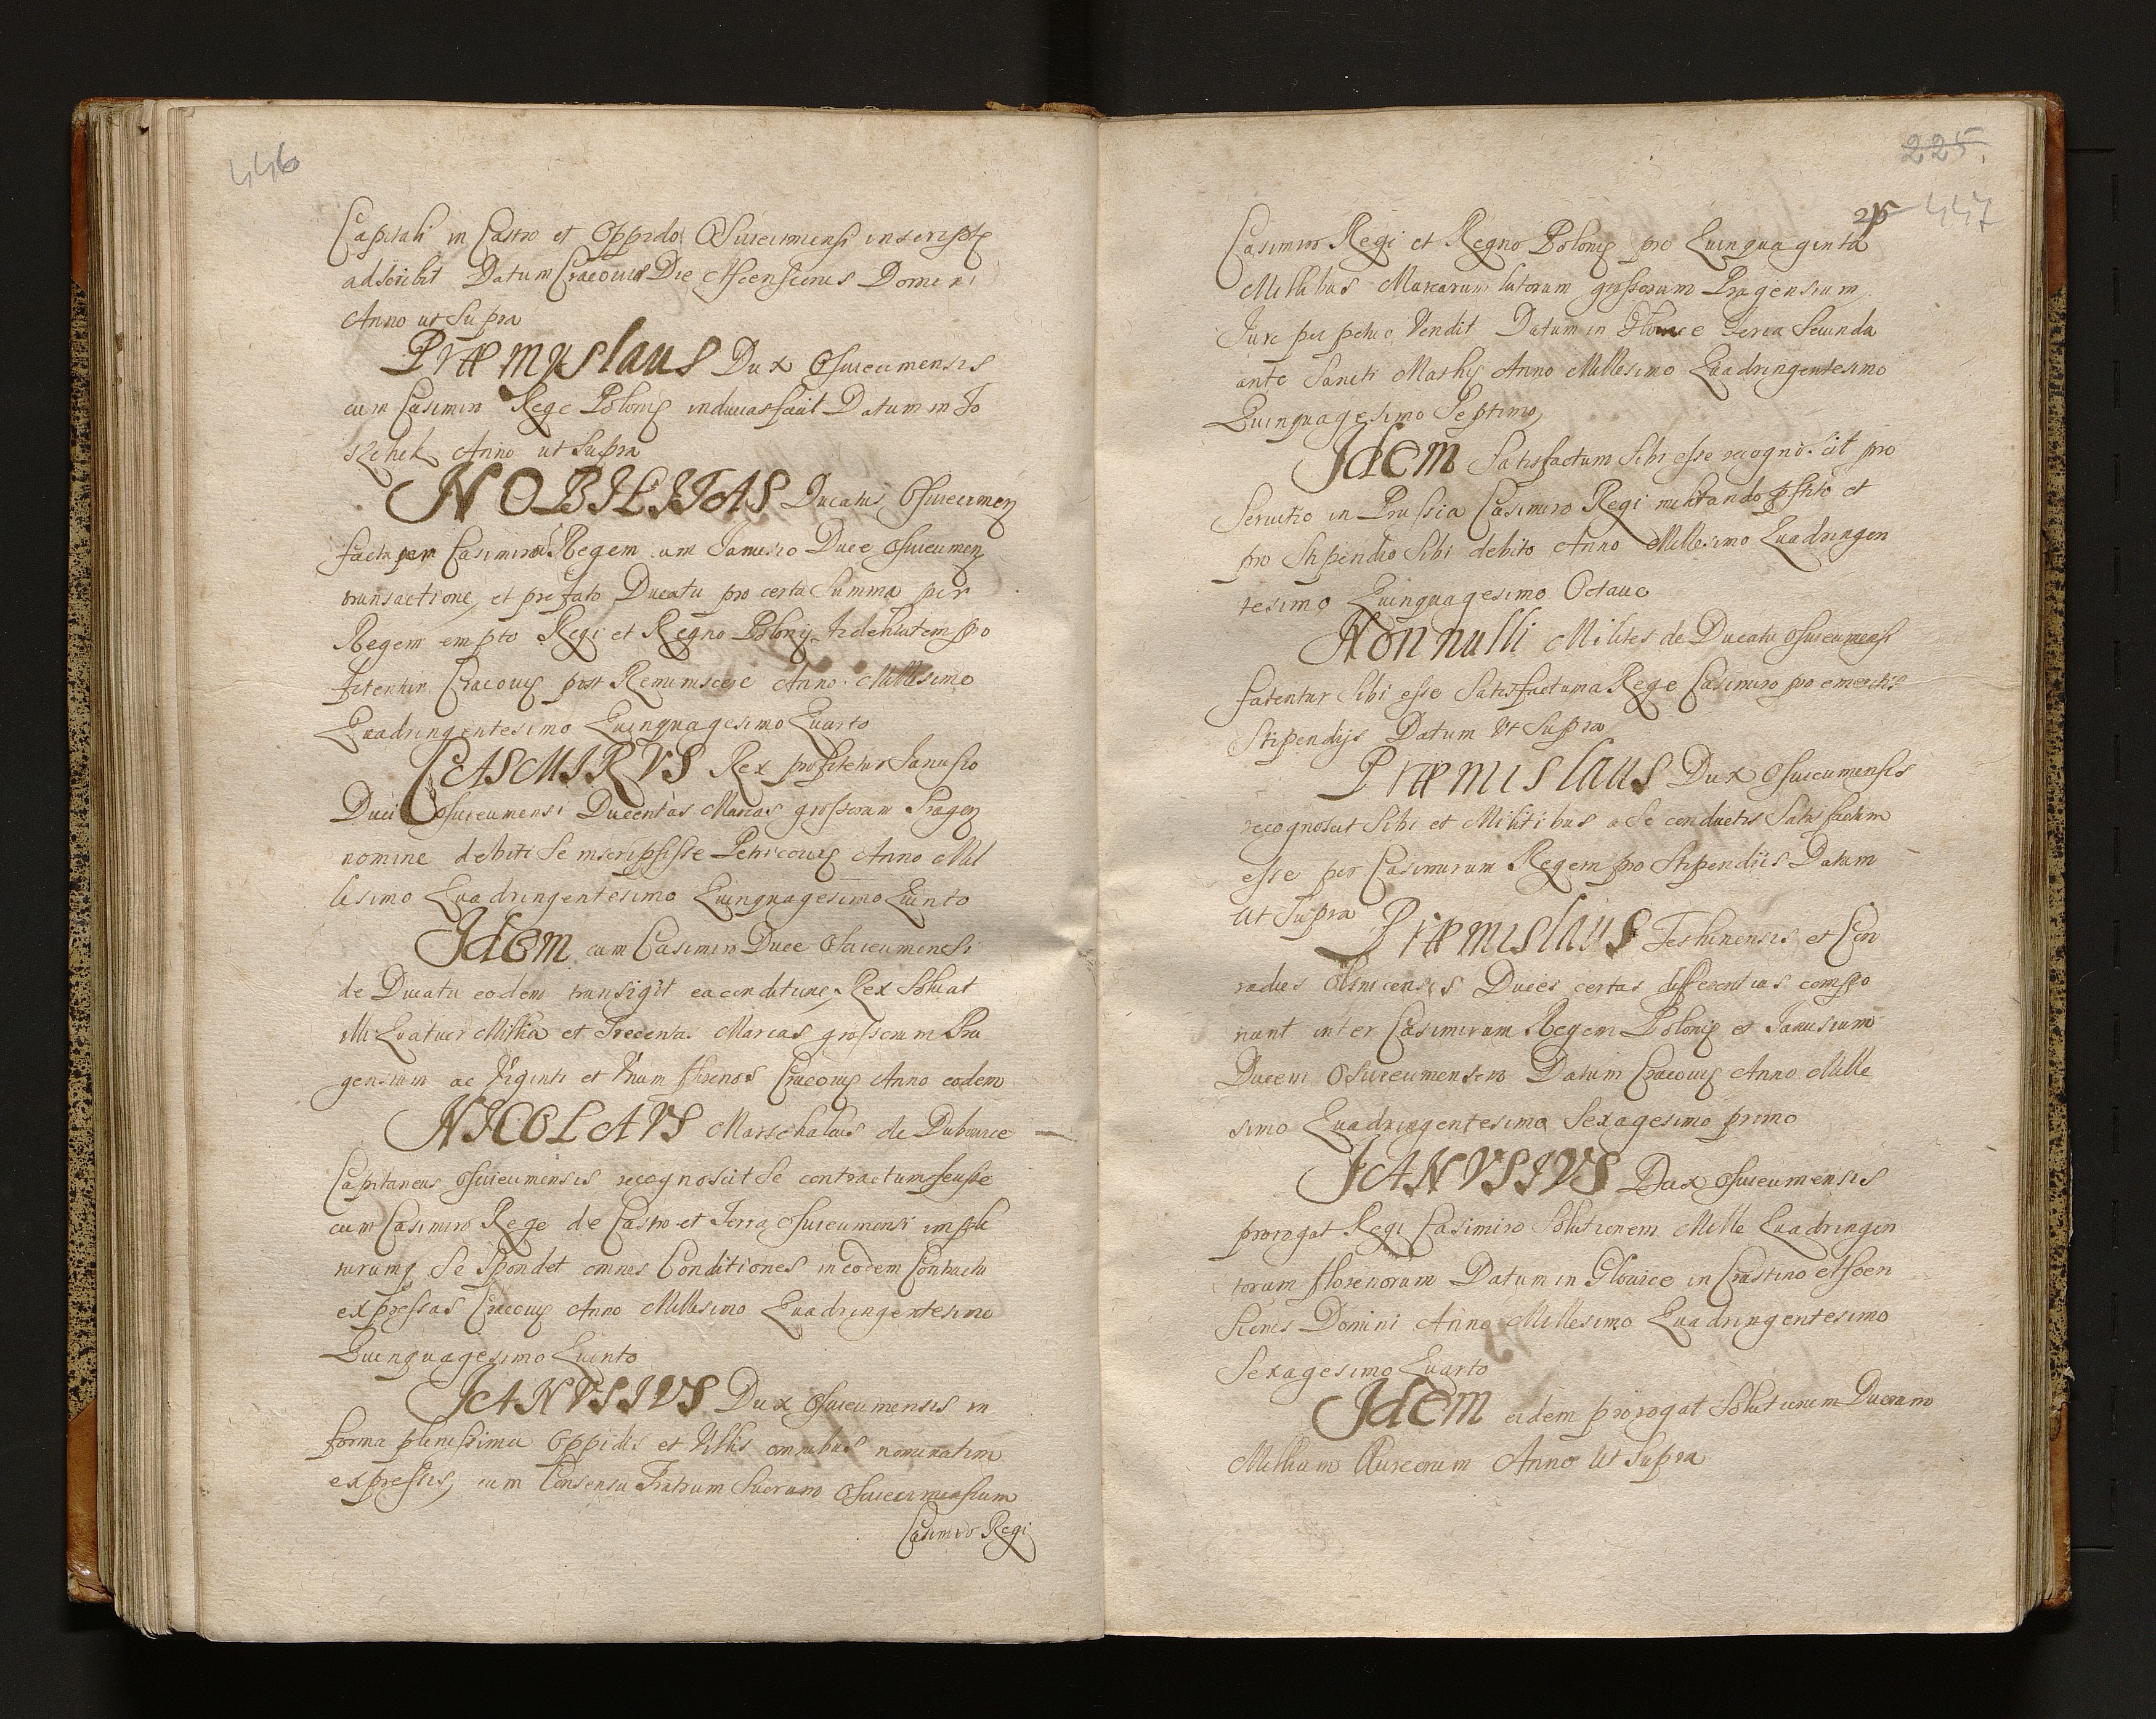 446
Capitali in Castro et Oppido Osuiecimensi inscriptę
adscribit Datum Cracouię Die Ascensionis Domini
Anno ut Supra
Præmyslaus Dux Osuiecimensis
cum Casimiro Rege Polonię inducias facit Datum in To
szehek Anno ut Supra
NOBILITAS Ducatus Osuiecimen
facta per Casimirum Regem cum Janusio Duce Osuiecimen
transactione, et prefato Ducatu pro certa Summa per
Regem empto Regi et Regno Polonię fidelitatem po
Cracouię post Reminiscere Anno Millesimo
Quadringentesimo Quinquagesimo Quarto
CASIMIRVS Rex profitetur Janusio
Duci Osuiecimensi Ducentas Marcas grossorum Pragen
nomine debiti Se inscripsisse Petricouię Anno Mil
lesimo Quadringentesimo Quinquagesimo Quinto
Idem cum Casimiro Duce Osuiecimensi
de Ducatu eodem transigit ea conditione, Rex Soluat
illi Quatuor Millia et Trecentas Marcas grossorum Pra
gensium ac Viginti et Vnum florenos Cracouię Anno eodem
NICOLAVS Marschalcus de Dubowice
Capitaneus Osuiecimensis recognoscit Se contractum
cum Casimiro Rege de Castro et Terra Osuiecimensi imple
turumq Se Spondet omnes Conditiones in eodem Contractu
expressas Cracouię Anno Millesimo Quadringentesimo
Quinquagesimo Quinto
JANVSIVS Dux Osuiecimensis in
forma plenissima Oppidis et Villis omnibus nominatim
expressis, cum Consensu Fratrum Suorum Osuiecimensium
Casimiro Regi
225.
447
Casimiro Regi et Regno Polonię pro Quinquaginta
Millibus Marcarum latorum grossorum Pragensium
Jure perpetuo Vendit Datum in Gliwice feria Secunda
ante Sancti Mathię Anno Millesimo Quadringentesimo
Quinquagesimo Septimo
Idem Satisfactum Sibi esse recognoscit pro
Seruitio in Prussia Casimiro Regi militando et
pro Stipendio Sibi debito Anno Millesimo Quadringen
tesimo Quinquagesimo Octauo
Nonnulli Milites de Ducatu Osuiecimensi
fatentur Sibi esse Satisfactum a Rege Casimiro pro emeritis
Stipendijs Datum Vt Supra
Præmislaus Dux Osuiecimensis
recognoscit Sibi et Militibus a Se conductis Satisfactum
esse per Casimirum Regem pro Stipendiis Datum
Ut Supra
Præmislaus Teshinensis et Con
radus Olsnicensis Duces certas differentias compo
nunt inter Casimirum Regem Polonię et Janusium
Ducem Osuiecimensem Datum Cracouię Anno Mille
simo Quadringentesimo Sexagesimo primo
JANVSIVS Dux Osuiecimensis
prorogat Regi Casimiro Solutionem Mille Quadringen
torum florenorum Datum in Gliwice in Crastino Ascen
sionis Domini Anno Millesimo Quadringentesimo
Sexagesimo Quarto
Idem eidem prorogat Solutionem Duorum
Millium Aureorum Anno Ut Supra